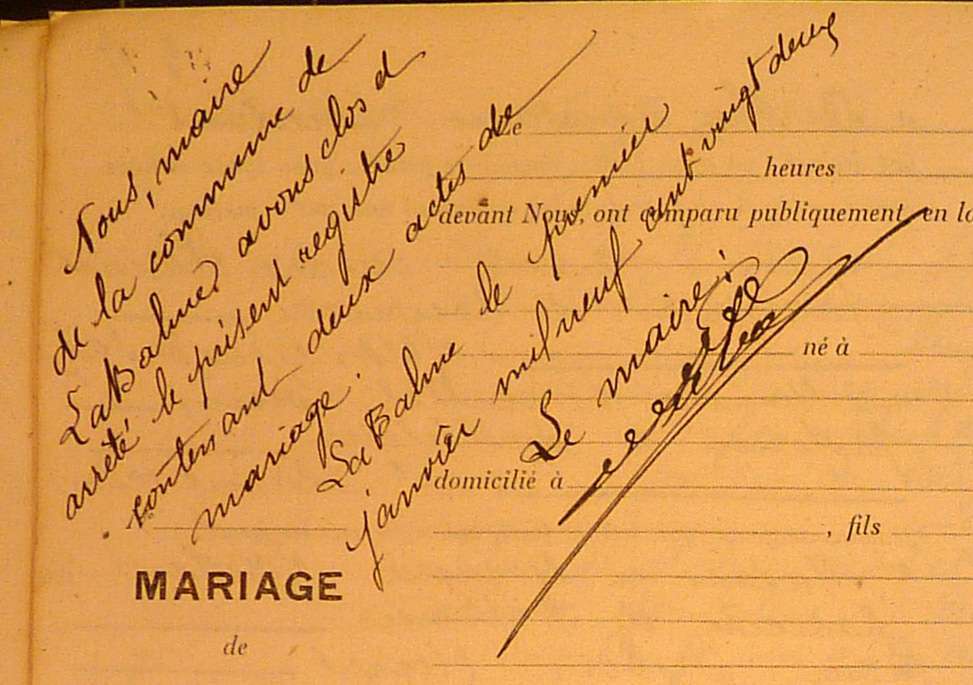 Nous, maire
de la commune de
La Balme avons clos et
arrêté le présent registre
contenant deux actes de
mariage.
La Balme le premier
janvier mil neuf cent vingt deux
Le maire,
Le
heures
devant Nous, ont comparu publiquement en la
né à
domicilié à
, fils
MARIAGE
de